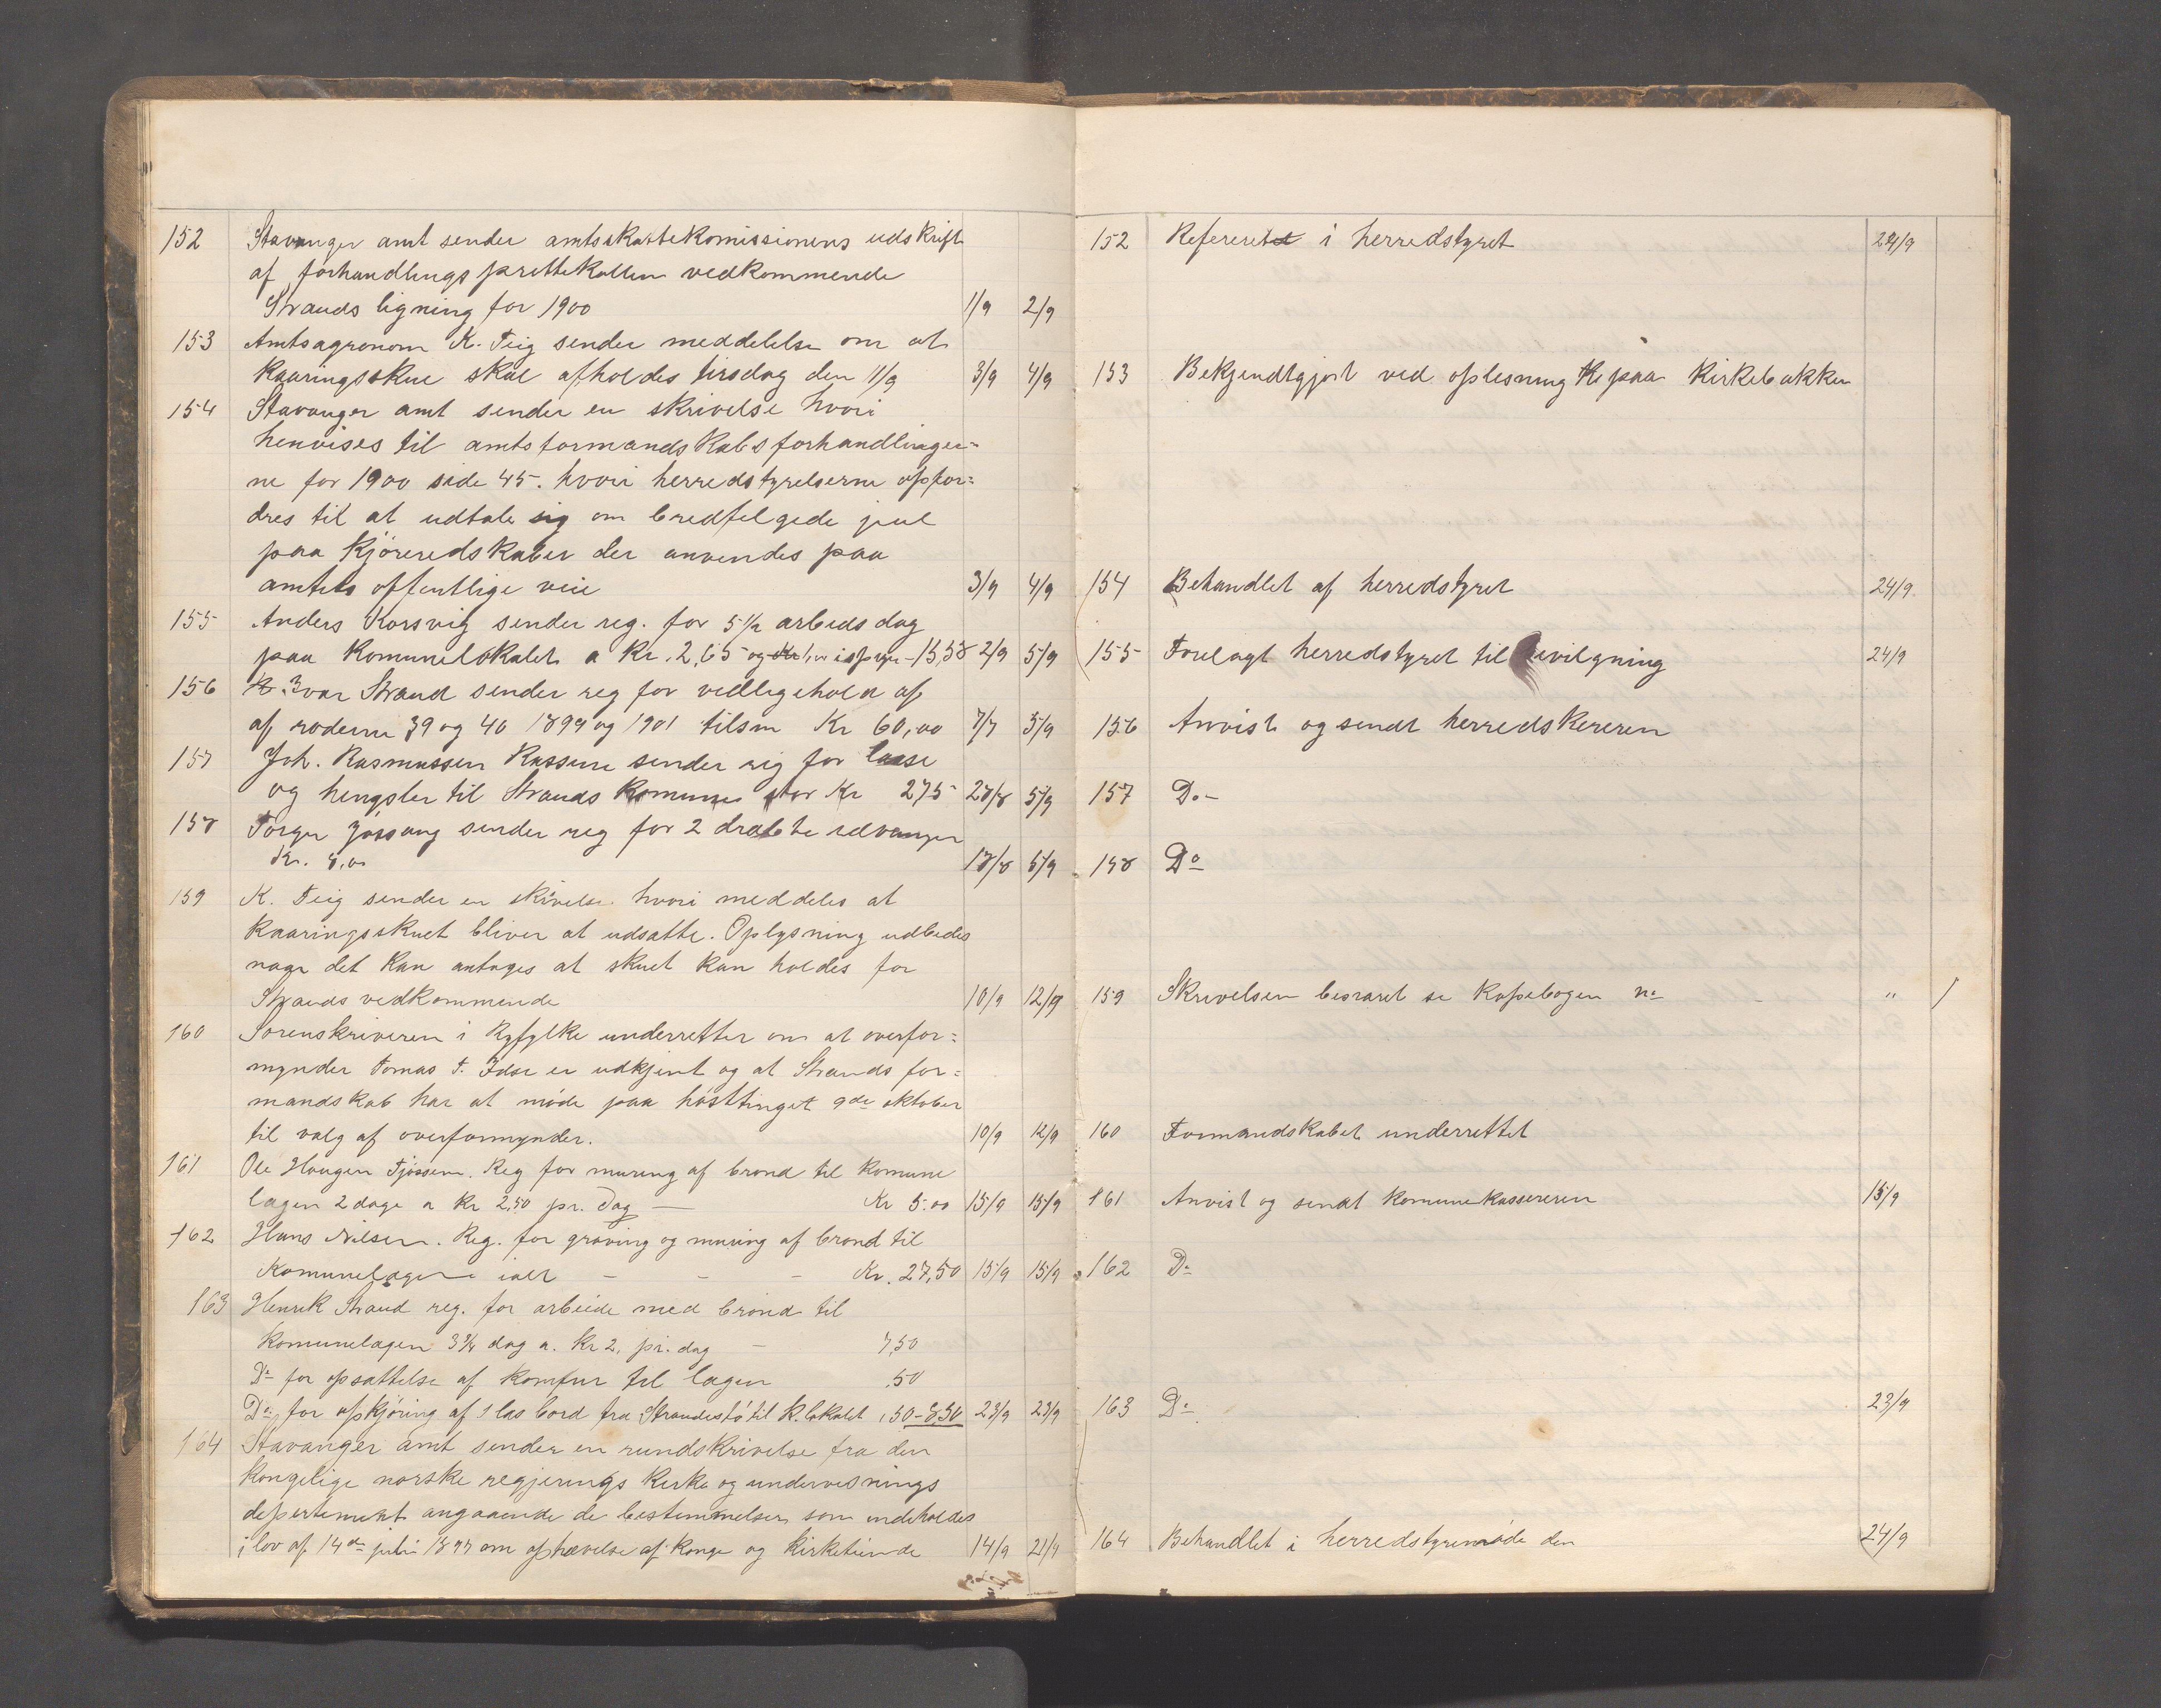 152 Stavanger amt sender amtsskattekomissionens udskrift
af forhandlingsprottekollen vedkommende
Strands ligning for 1900 1/9 2/9
153 Amtsagronom K. Teig sender meddelelse om at
Kaaringsskue skal afholdes tirsdag den 11/9 3/9 4/9
154 Stavanger amt sender en skrivelse hvori
henvises til amtsformandskabsforhandlinger=
ne for 1900 side 45. hvori herredstyrelserne opfor=
dres til at udtale sig om bredfelgede jul
paa Kjøreredskaber der anvendes paa
amtets offentlige veie 3/9 4/9
155 Anders Korsvig sender reg. for 5 1/2 arbeidsdag
paa Komunelokalet a Kr. 2,65 og 15,58 2/9 5/9
156 Ivar Strand sender reg for vedligehold af
af roderne 39 og 40 1899 og 1901 tilsm Kr 60,00 7/7 5/9
157 Joh. Rasmussen Rassene sender reg for laase
og hengsler til Strands Komune stor Kr 275 28/8 5/9
158 Torger Jøssang sender reg for 2 dræbte
Kr. 8,00 18/8 5/9
159 K. Teig sender en skrivelse hvori meddeles at
Kaaringsskuet bliver at udsætte. Oplysning udbedes
naar det Kan antages at skuet kan holdes for
Strands vedkommende 10/9 12/9
160 Sorenskriveren i Ryfylke underretter om at overfor=
mynder Tomas T. Idse er udkjent og at Strands for=
mandskab har at møde paa høsttinget 9de oktober
til valg af overformynder. 10/9 12/9
161 Ole Haugen Tjøssem. Reg for muring af brønd til Komune
lægen 2 dage a Kr 2,50 pr. Dag — Kr 5.00 15/9 15/9
162 Hans Nilsen. Reg. for graving og muring af brønd til
Komunelægen ialt - - - Kr. 27,50 15/9 15/9
163 Henrik Strand reg. for arbeide med brønd til
Komunelægen 3 3/4 dag a. Kr 2, pr. dag — 7,50
Do for opsættelse af Komfur til lægen ,50
Do for opkjøring af 1 las bord fra Strandestø til K. lokalet ,50 - 8,50 23/9 23/9
164 Stavanger amt sender en rundskrivelse fra den
Kongelige norske regjerings Kirke og undervisnings
depertement angaaende de bestemmelser som indeholdes
i lov af 14de juli 1897 om ophævelse af Konge og Kirketiende 14/9 21/9
152 Refereret i herredstyret 24/9
153 Bekjendtgjort ved oplesning paa Kirkebakken
154 Behandlet af herredstyret 24/9
155 Forelagt herredstyret til bevilgning 24/9
156 Anvist og sendt herredskereren
157 Do -
158 Do
159 Skrivelsen besvaret se Kopebogen No "
160 Formandskabet underrettet
161 Anvist og sendt Komunekassereren 15/9
162 Do
163 Do 23/9
164 Behandlet i herredstyremøde den 24/9